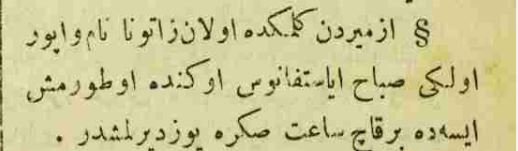 § ازمیردن كلمكده اولان زاتونا نام واپور
اولكی صباح ایاستفانوس اوكنده اوطورمش
ایسه‌ده برقاچ ساعت صكره یوزدیرلمشدر .